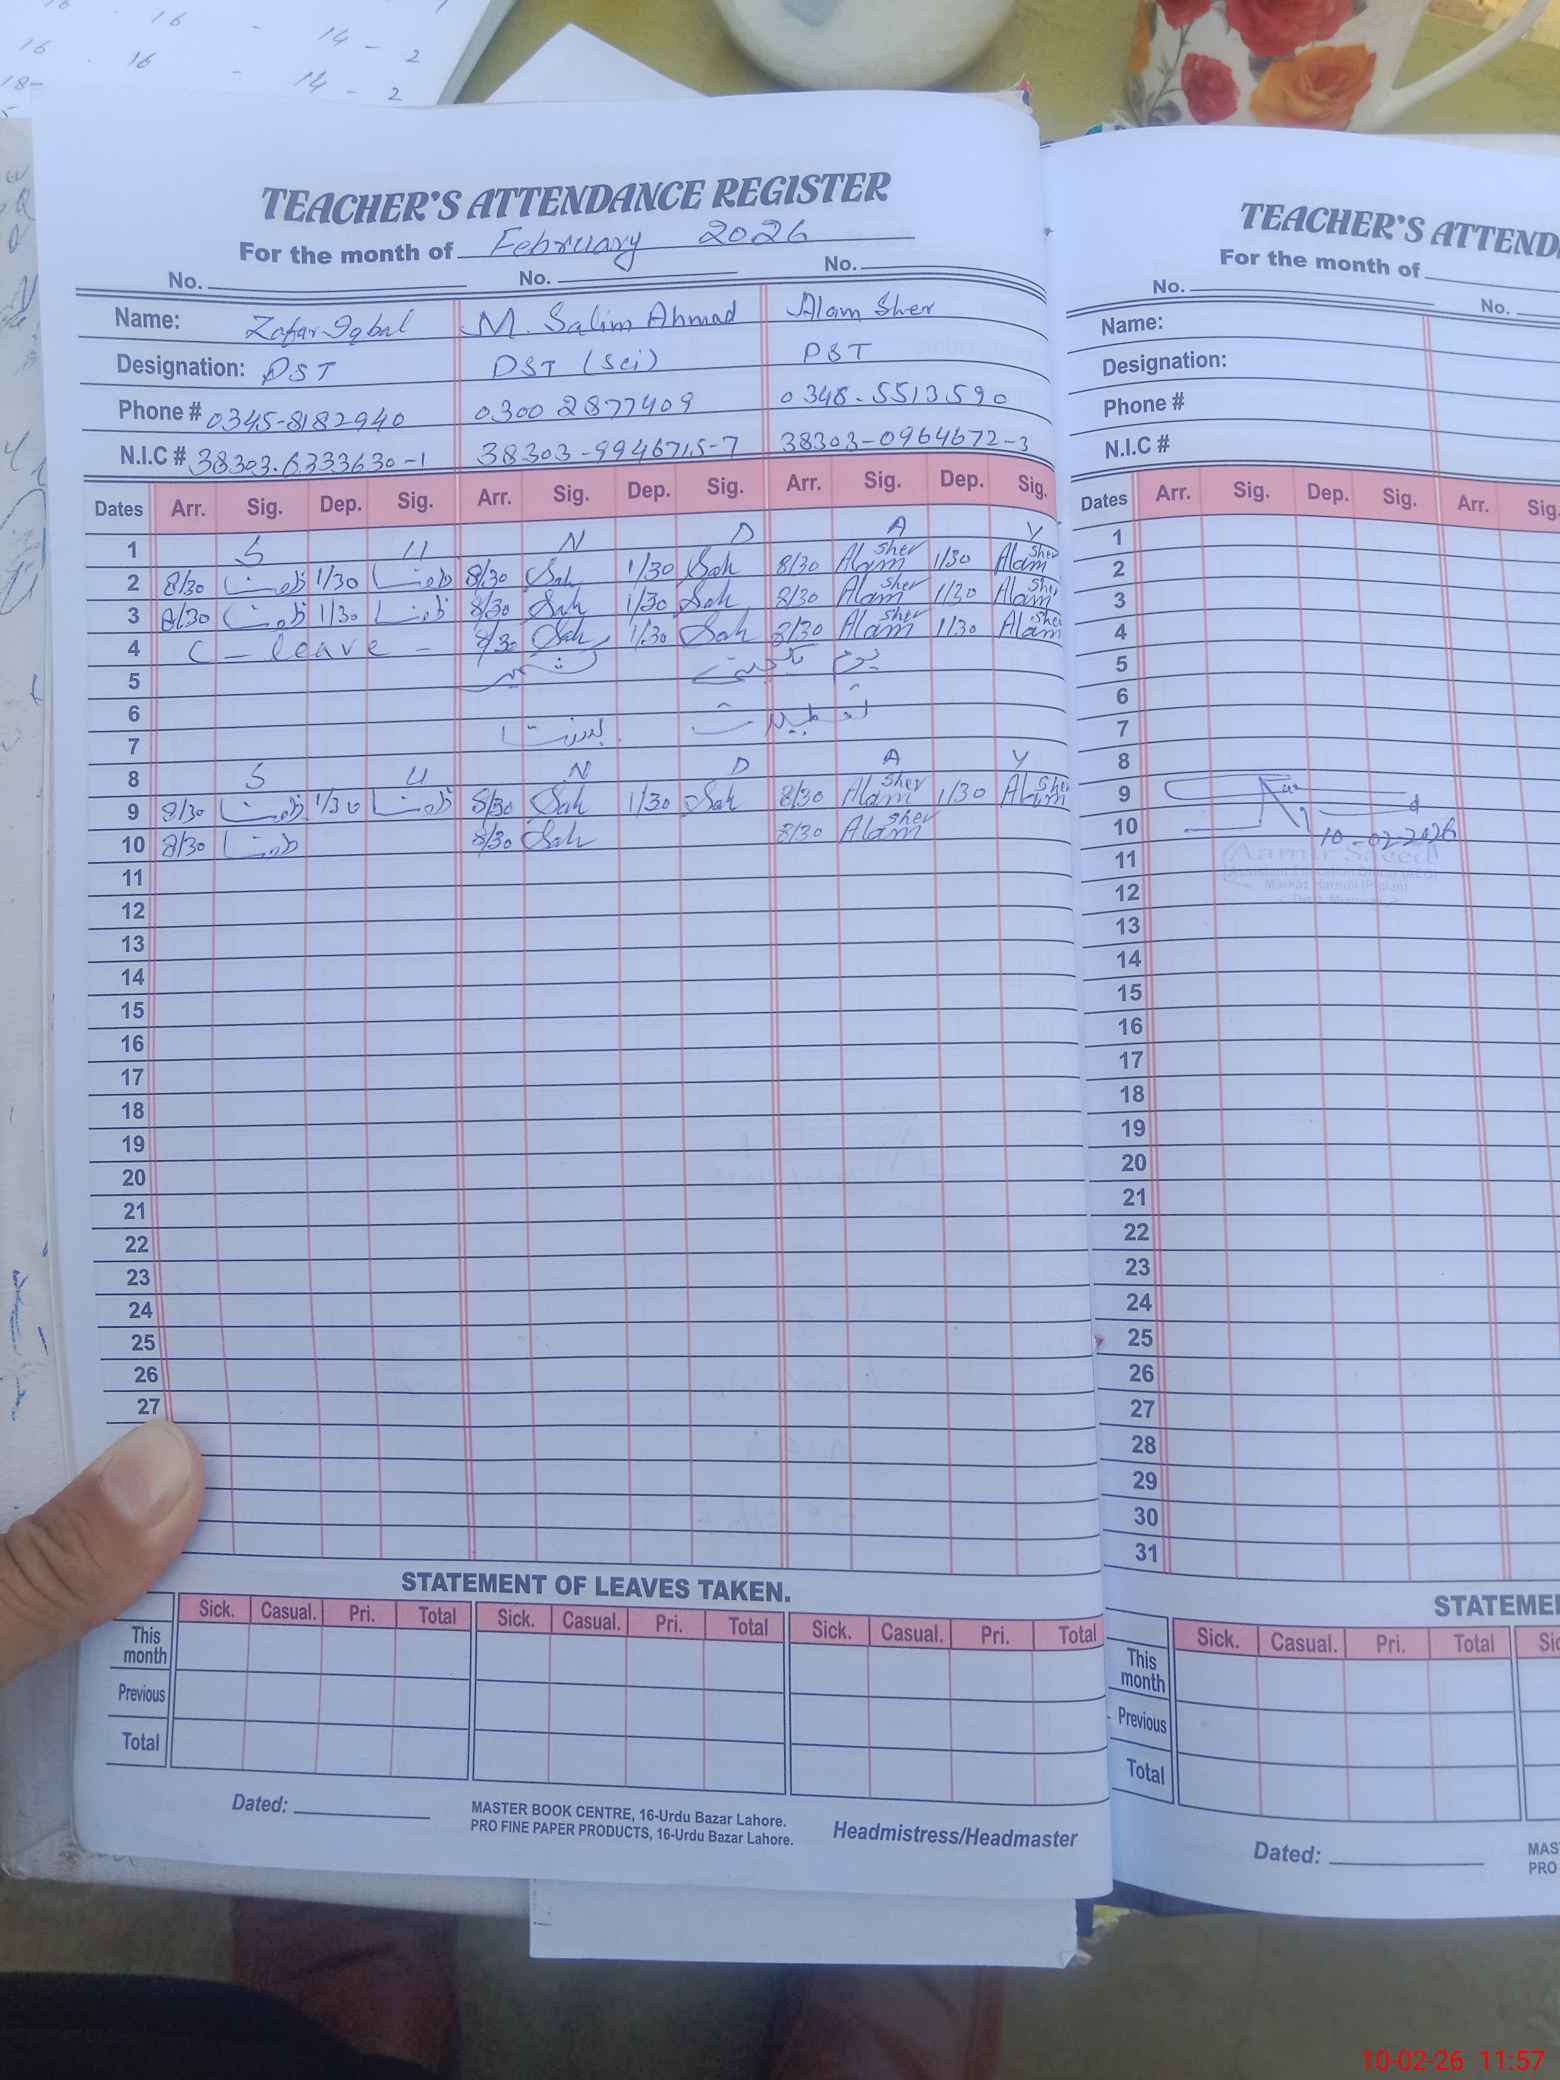 16 - 14 - 2
16 . 16 - 14 - 2
18-
TEACHER'S ATTENDANCE REGISTER
For the month of February 2026
No. No. No.
Name: Zafar Iqbal M. Salim Ahmad Alam Sher
Designation: PST DST (Sci) PST
Phone # 0345-8182940 0300 2877409 0348-5513590
N.I.C # 38303-6333630-1 38303-9946715-7 38303-0964672-3
Dates Arr. Sig. Dep. Sig. Arr. Sig. Dep. Sig. Arr. Sig. Dep. Sig.
1 S U N D A Y
2 8/30 1/30 8/30 Sah 1/30 Sah 8/30 Alam Sher 1/30 Alam Sher
3 8/30 1/30 8/30 Sah 1/30 Sah 8/30 Alam Sher 1/30 Alam Sher
4 C - leave - 8/30 Sah 1/30 Sah 8/30 Alam Sher 1/30 Alam Sher
5 یوم یکجہتی کشمیر
6
7
8 S U N D A Y
9 8/30 1/30 8/30 Sah 1/30 Sah 8/30 Alam Sher 1/30 Alam Sher
10 8/30 8/30 Sah 8/30 Alam Sher
11
12
13
14
15
16
17
18
19
20
21
22
23
24
25
26
27
STATEMENT OF LEAVES TAKEN.
Sick. Casual. Pri. Total Sick. Casual. Pri. Total Sick. Casual. Pri. Total
This month
Previous
Total
Dated:
MASTER BOOK CENTRE, 16-Urdu Bazar Lahore.
PRO FINE PAPER PRODUCTS, 16-Urdu Bazar Lahore.
Headmistress/Headmaster
TEACHER'S ATTEND
For the month of
No. No.
Name:
Designation:
Phone #
N.I.C #
Dates Arr. Sig. Dep. Sig. Arr. Sig.
1
2
3
4
5
6
7
8
9
10 10-02-2026
11 Aamir Saeed
12
13
14
15
16
17
18
19
20
21
22
23
24
25
26
27
28
29
30
31
STATEME
Sick. Casual. Pri. Total Sic
This month
Previous
Total
Dated:
MAS
PRO
10-02-26 11:57